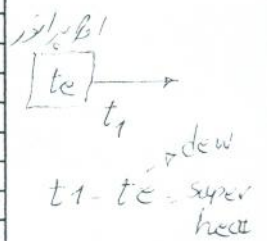 اواپراتور
te
t1
dew
t1 - te = super
heat